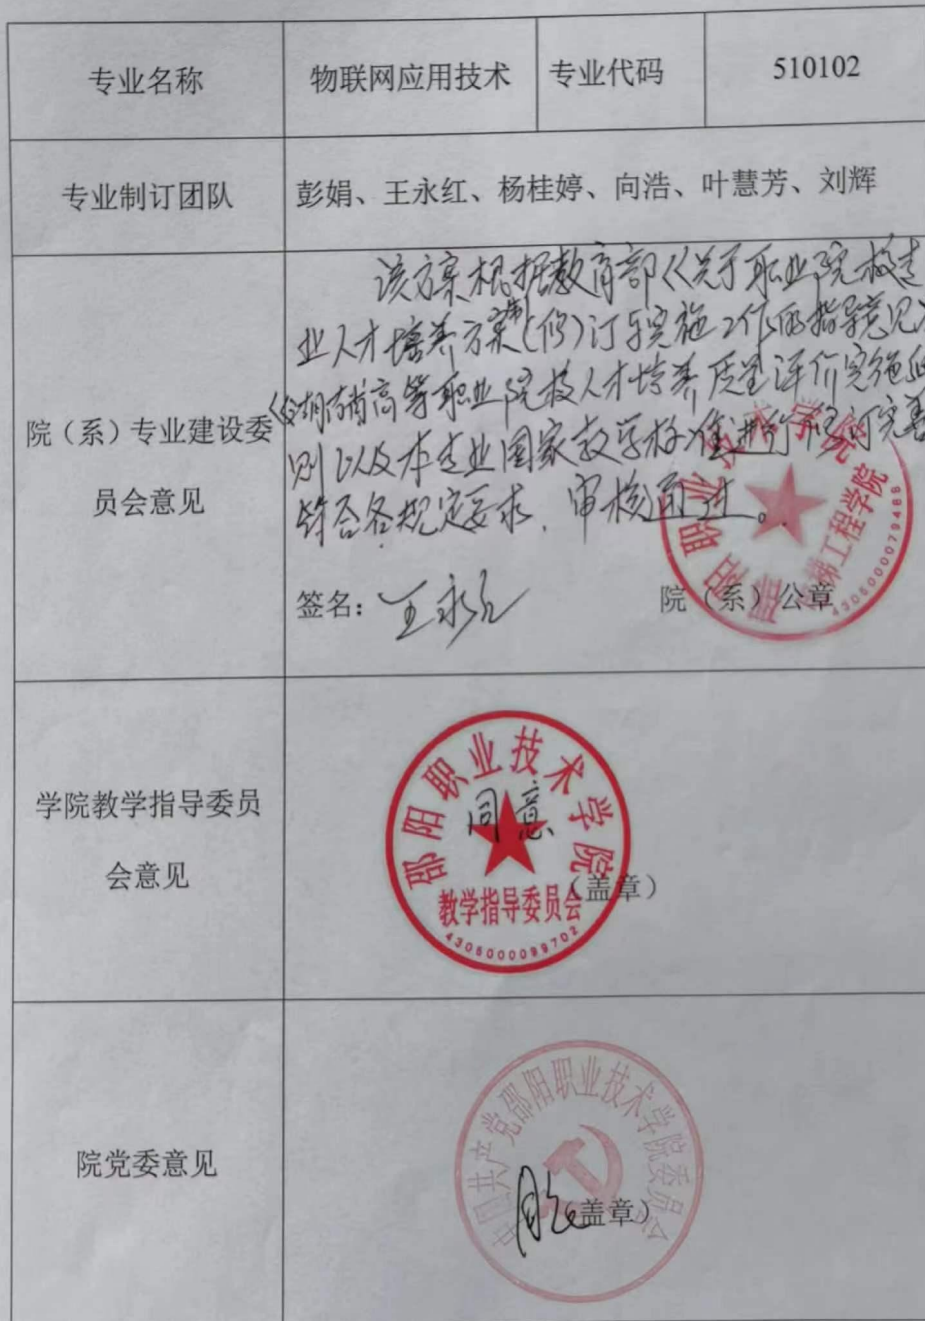 专业名称 物联网应用技术 专业代码 510102
专业制订团队 彭娟、王永红、杨桂婷、向浩、叶慧芳、刘辉
院（系）专业建设委
员会意见
该方案根据教育部《关于职业院校专
业人才培养方案制(修)订与实施工作的指导意见》
《湖南省高等职业院校人才培养质量评价实施细
则以及本专业国家教学标准进行修订完善
符合各规定要求，审核通过。
签名：王永红 院（系）公章
邵阳职业技术学院
电梯工程学院
4305000079466
学院教学指导委员
会意见
邵阳职业技术学院
同意
（盖章）
教学指导委员会
4305000099702
院党委意见
中国共产党邵阳职业技术学院委员会
同意
盖章）